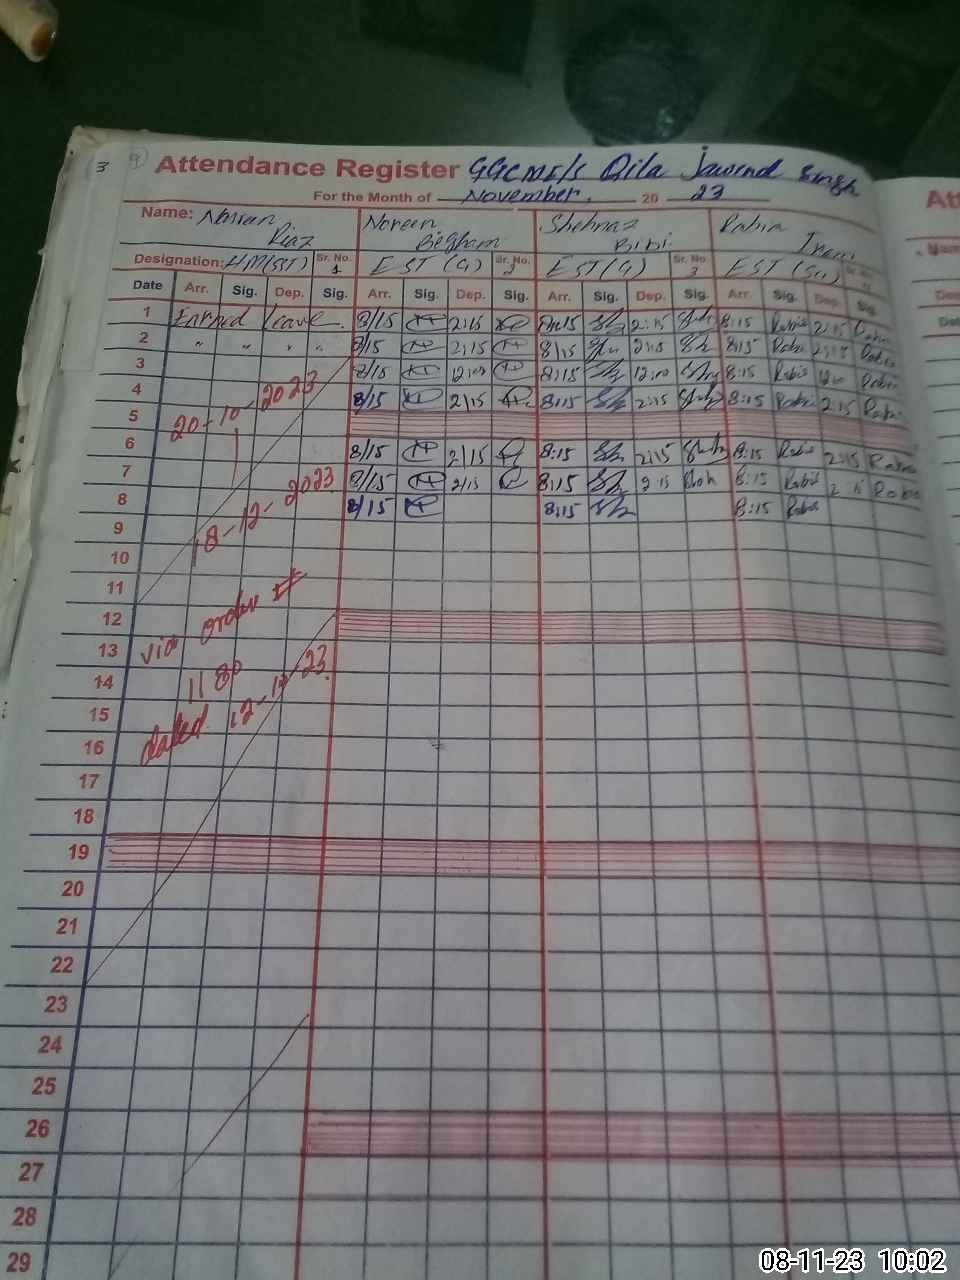 3 9 Attendance Register GGCMES Qila Jawand Singh Att
For the Month of November. 20 23
Name: Riaz Noreen Begham Shehnaz Bibi Rabia
Designation: HM(SST) Sr. No. 1 EST (G) Sr. No. 2 EST (G) Sr. No. 3 EST (Sci)
Date Arr. Sig. Dep. Sig. Arr. Sig. Dep. Sig. Arr. Sig. Dep. Sig. Arr. Sig. Dep. Sig.
1 Earned Leave. 8/15 2:15 8:15 2:15 8:15 Rabia 2:15 Rabia
2 " " " " 8/15 2:15 8/15 2:15 8:15 Rabia 2:15 Rabia
3 8/15 12:00 8:15 12:00 8:15 Rabia 12:00 Rabia
4 8/15 2/15 8:15 2:15 8:15 Rabia 2:15 Rabia
20-10-2023
5
6 8/15 2/15 8:15 2:15 8:15 Rabia 2:15 Rabia
7 8/15 2/15 8:15 2 15 8:15 Rabia 2 15 Rabia
8 8/15 8:15 8:15 Rabia
18-12-2023
9
10
11
12
via order #
13
14
1180
15
dated 12-10-23.
16
17
18
19
20
21
22
23
24
25
26
27
28
29
08-11-23 10:02